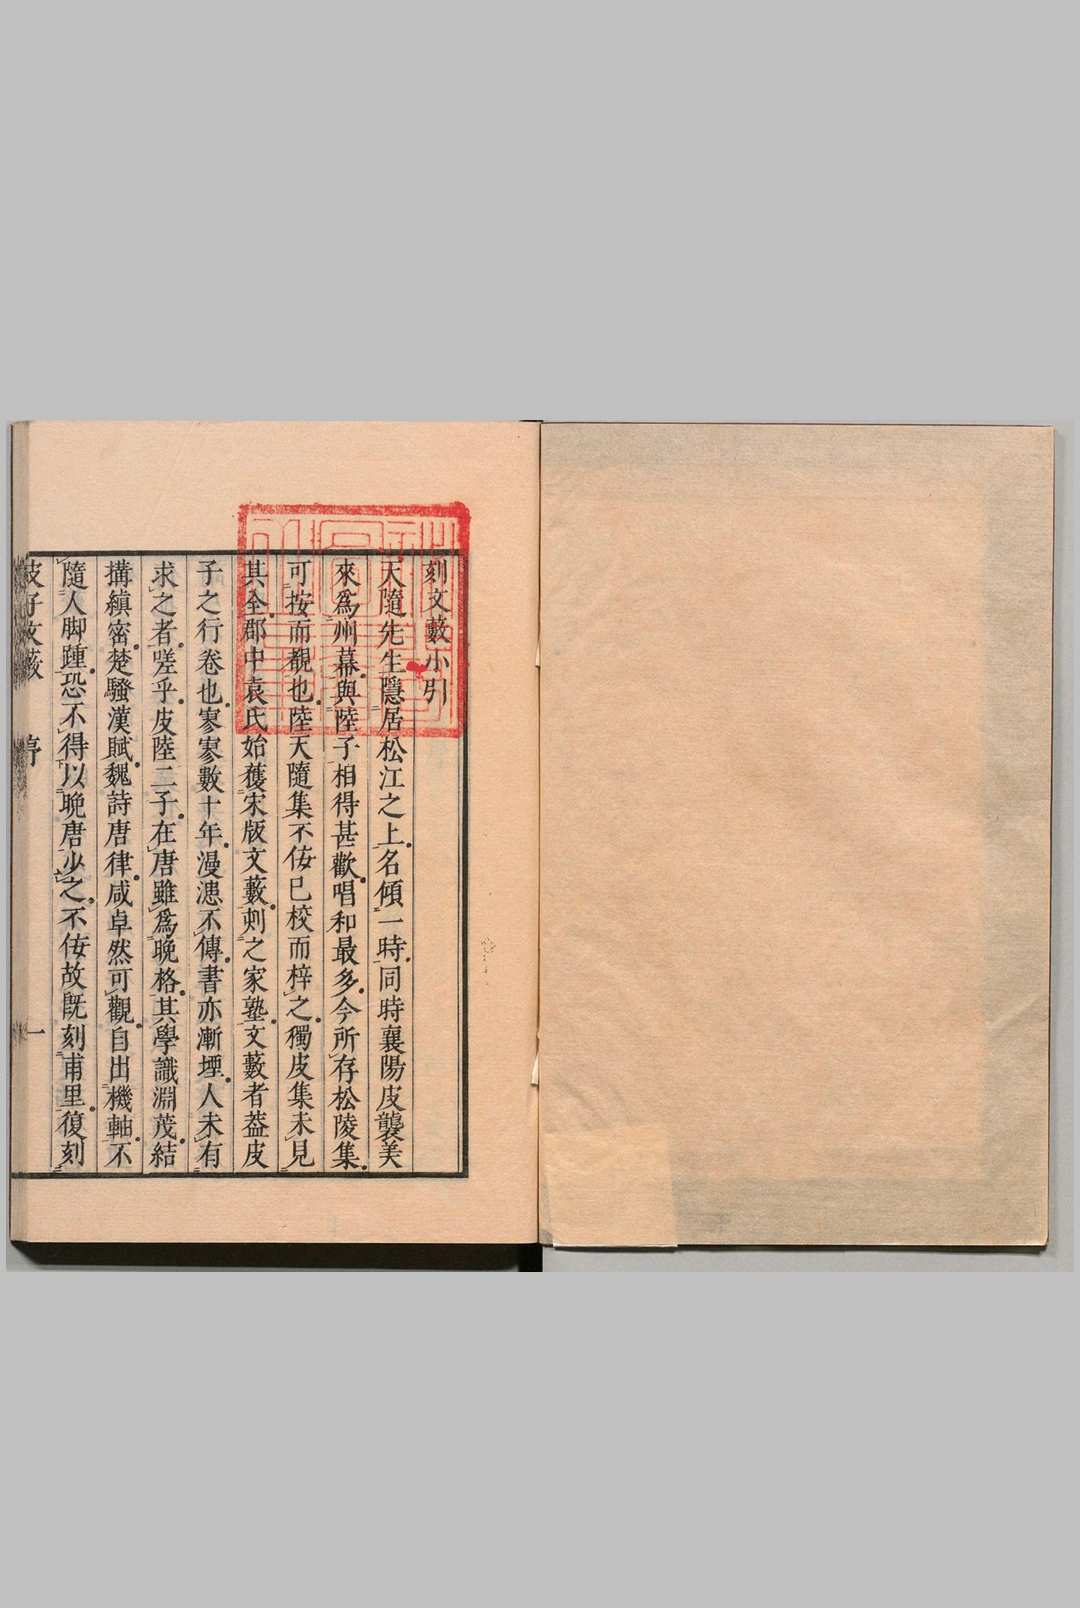 刻文藪小引
天隨先生隱居松江之上名傾一時同時襄陽皮襲美
來爲州幕與陸子相得甚歡唱和最多今所存松陵集
可按而覩也陸天隨集不佞已校而梓之獨皮集未見
其全郡中袁氏始獲宋版文藪刻之家塾文藪者葢皮
子之行卷也寥寥數十年漫漶不傳書亦漸堙人未有
求之者嗟乎皮陸二子在唐雖爲晚格其學識淵茂結
搆縝密楚騷漢賦魏詩唐律咸卓然可觀自出機軸不
隨人脚踵恐不得以晚唐少之不佞故旣刻甫里復刻
皮子文藪 序 一